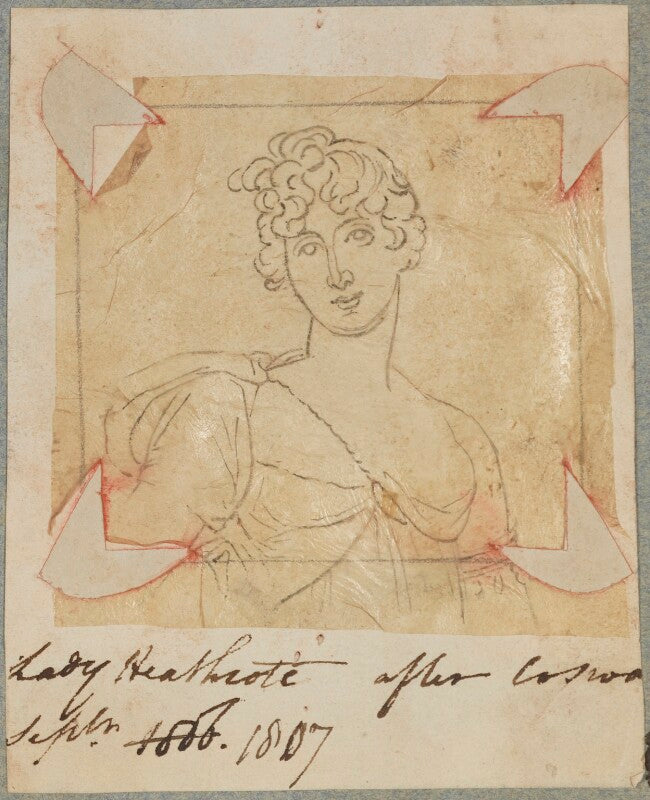 Lady Heathcote after Coswa
Septr 1806. 1807